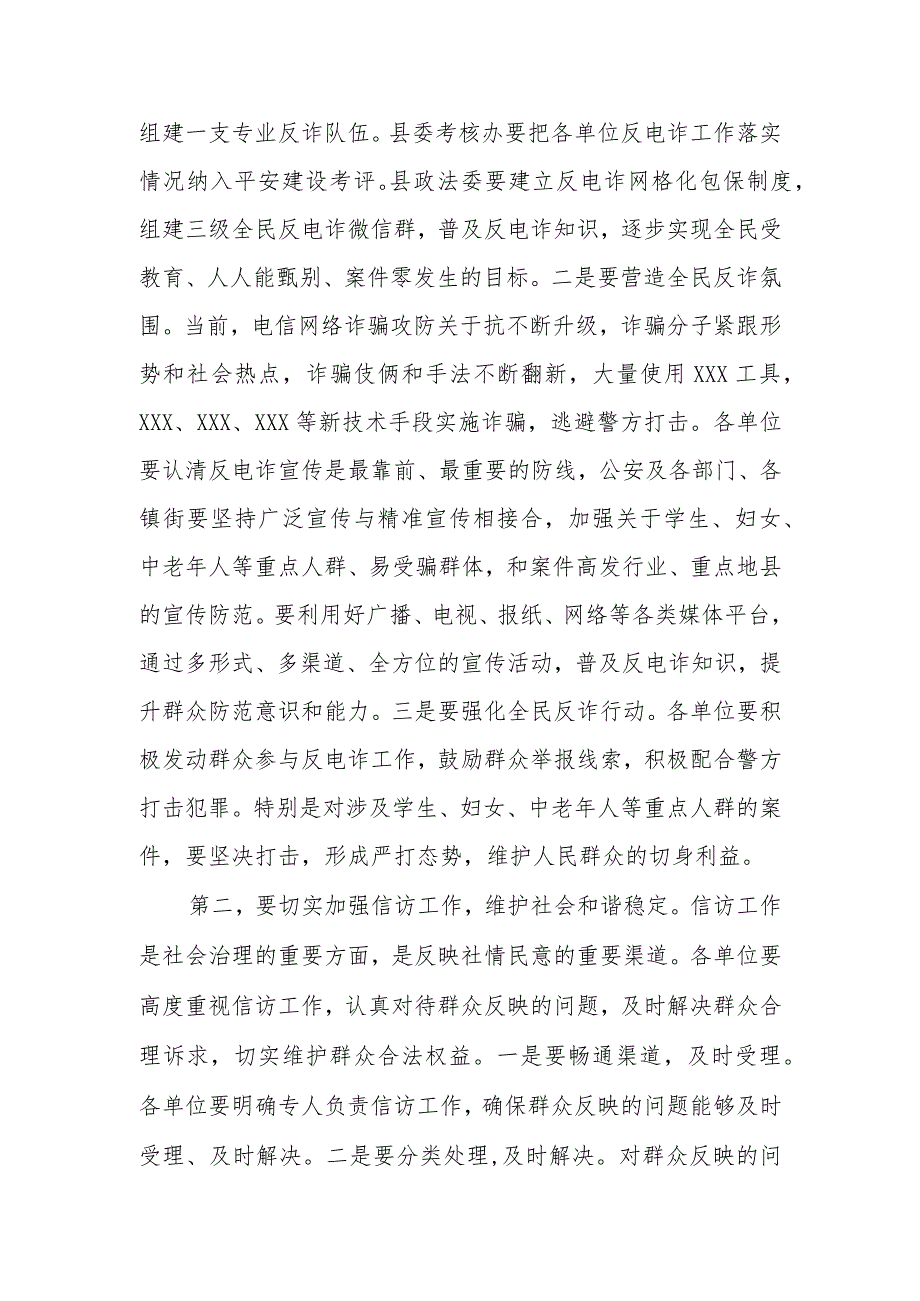 组建一支专业反诈队伍。县委考核办要把各单位反电诈工作落实
情况纳入平安建设考评。县政法委要建立反电诈网格化包保制度，
组建三级全民反电诈微信群，普及反电诈知识，逐步实现全民受
教育、人人能甄别、案件零发生的目标。二是要营造全民反诈氛
围。当前，电信网络诈骗攻防关于抗不断升级，诈骗分子紧跟形
势和社会热点，诈骗伎俩和手法不断翻新，大量使用 XXX 工具，
XXX、XXX、XXX 等新技术手段实施诈骗，逃避警方打击。各单位
要认清反电诈宣传是最靠前、最重要的防线，公安及各部门、各
镇街要坚持广泛宣传与精准宣传相接合，加强关于学生、妇女、
中老年人等重点人群、易受骗群体，和案件高发行业、重点地县
的宣传防范。要利用好广播、电视、报纸、网络等各类媒体平台，
通过多形式、多渠道、全方位的宣传活动，普及反电诈知识，提
升群众防范意识和能力。三是要强化全民反诈行动。各单位要积
极发动群众参与反电诈工作，鼓励群众举报线索，积极配合警方
打击犯罪。特别是对涉及学生、妇女、中老年人等重点人群的案
件，要坚决打击，形成严打态势，维护人民群众的切身利益。
第二，要切实加强信访工作，维护社会和谐稳定。信访工作
是社会治理的重要方面，是反映社情民意的重要渠道。各单位要
高度重视信访工作，认真对待群众反映的问题，及时解决群众合
理诉求，切实维护群众合法权益。一是要畅通渠道，及时受理。
各单位要明确专人负责信访工作，确保群众反映的问题能够及时
受理、及时解决。二是要分类处理,及时解决。对群众反映的问